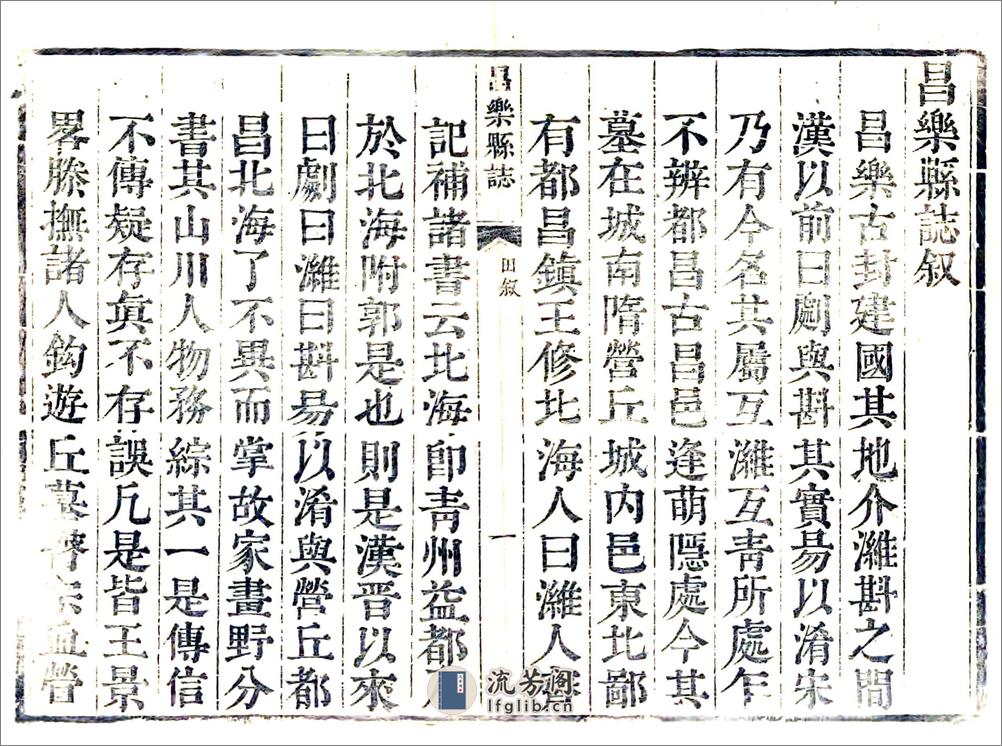 昌樂縣誌叙
昌樂古封建國其地介濰斟之間
漢以前曰劇與斟其實昜以淆宋
乃有今名其屬互濰互靑所處乍
不辨都昌古昌邑逢萌隱處今其
墓在城南隋營丘城内邑東北鄙
有都昌鎮王修北海人曰濰人
昌樂縣誌
田叙
一
記補諸書云北海卽靑州益都
於北海附郭是也則是漢晉以來
曰劇曰濰曰斟昜以淆與營丘都
昌北海了不異而掌故家畫野分
書其山川人物務綜其一是傳信
不傳疑存眞不存誤凡是皆王景
畧滕撫諸人鈎遊丘墓營
流芳阁
lfglib.cn